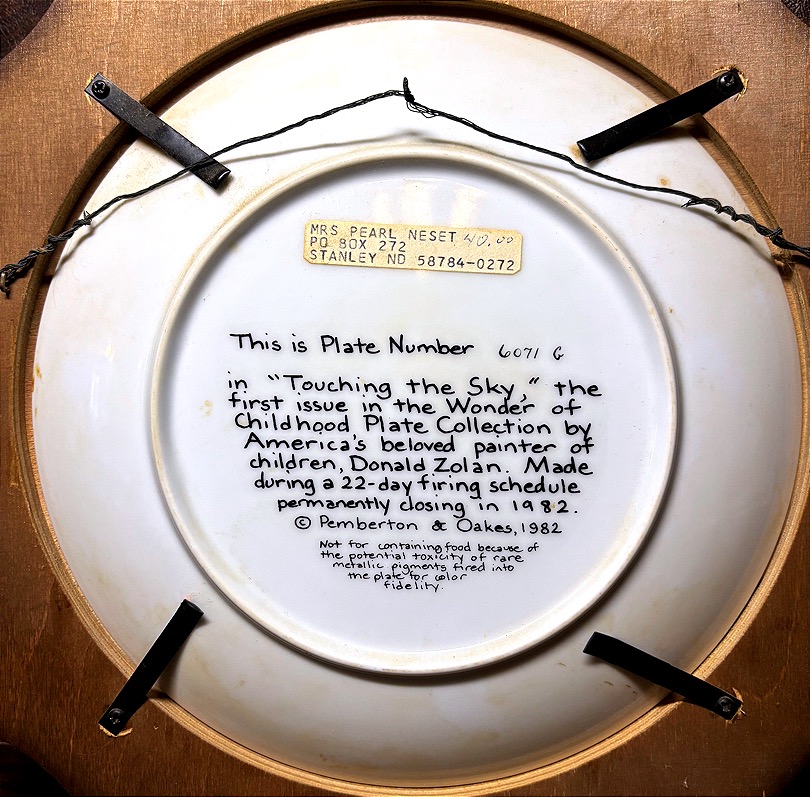 MRS PEARL NESET 40.00
PO BOX 272
STANLEY ND 58784-0272
This is Plate Number 6071 G
in "Touching the Sky," the
first issue in the Wonder of
Childhood Plate Collection by
America's beloved painter of
children, Donald Zolan. Made
during a 22-day firing schedule
permanently closing in 1982.
© Pemberton & Oakes, 1982
Not for containing food because of
the potential toxicity of rare
metallic pigments fired into
the plate for color
fidelity.